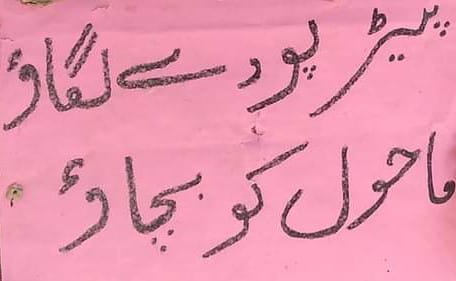 پیڑ پودے لگاؤ
ماحول کو بچاؤ